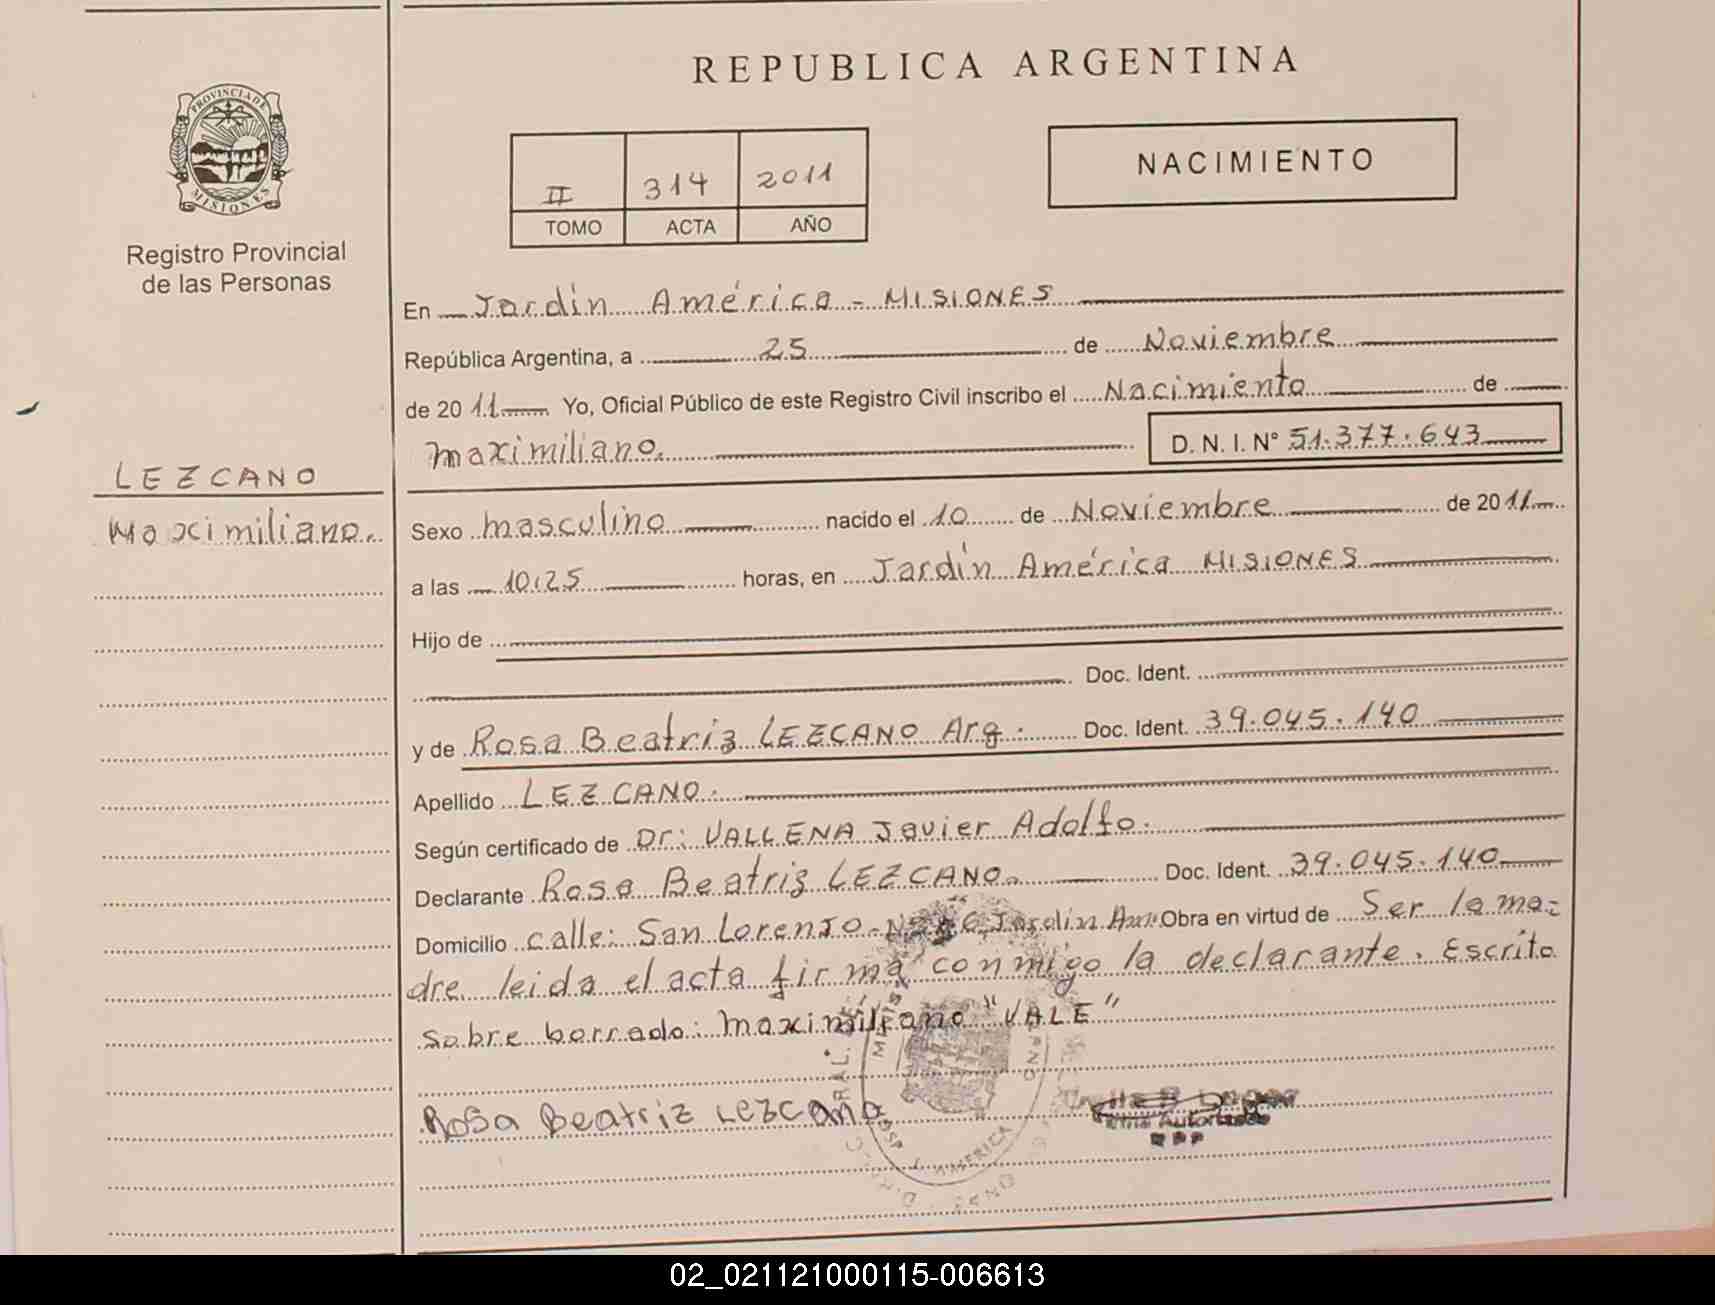 REPUBLICA ARGENTINA
PROVINCIA DE
MISIONES
Registro Provincial
de las Personas
II 314 2011
TOMO ACTA AÑO
NACIMIENTO
LEZCANO
Maximiliano..
En Jardín América - MISIONES
República Argentina, a 25 de Noviembre
de 2011 Yo, Oficial Público de este Registro Civil inscribo el Nacimiento de
maximiliano. D. N. I. N° 51.377.643
Sexo masculino nacido el 10 de Noviembre de 2011
a las 10:25 horas, en Jardín América MISIONES
Hijo de
Doc. Ident.
y de Rosa Beatriz LEZCANO Arg. Doc. Ident. 39.045.140
Apellido LEZCANO.
Según certificado de Dr: VALLENA Javier Adolfo.
Declarante Rosa Beatriz LEZCANO. Doc. Ident. 39.045.140
Domicilio calle: San Lorenzo - Jardín Am. Obra en virtud de Ser la ma-
dre. leida el acta firma conmigo la declarante. Escrito
sobre borrado: maximiliano "VALE"
Rosa Beatriz Lezcano
AMERICA
02_021121000115-006613